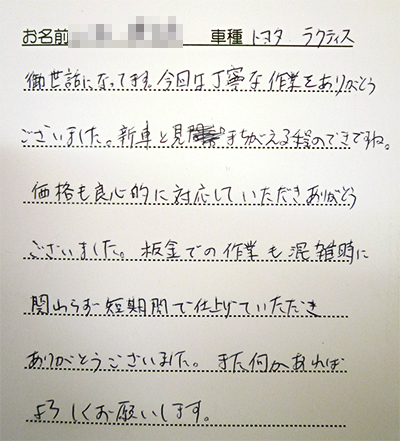 お名前 車種 トヨタ ラクティス
御世話になってます。今回は丁寧な作業をありがとう
ございました。新車と見まちがえる程のできですね。
価格も良心的に対応していただきありがとう
ございました。板金での作業も混雑時に
関わらず短期間で仕上げていただき
ありがとうございました。また何かあれば
よろしくお願いします。